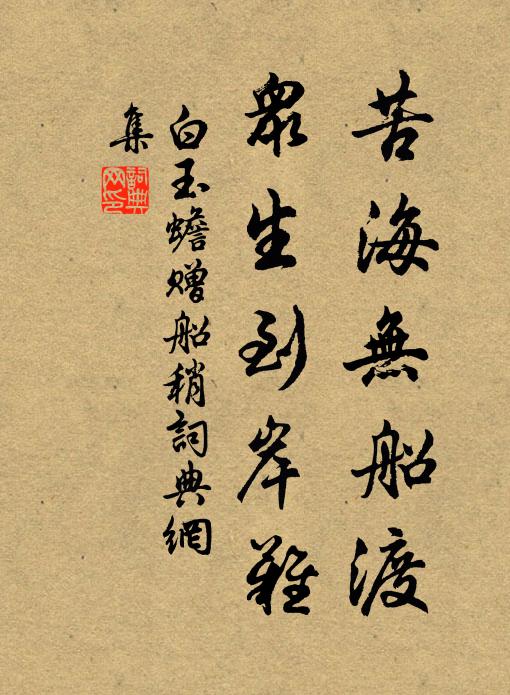 苦海無船渡
眾生到岸難
白玉蟾贈船稍詞典網
集
詞典
网印